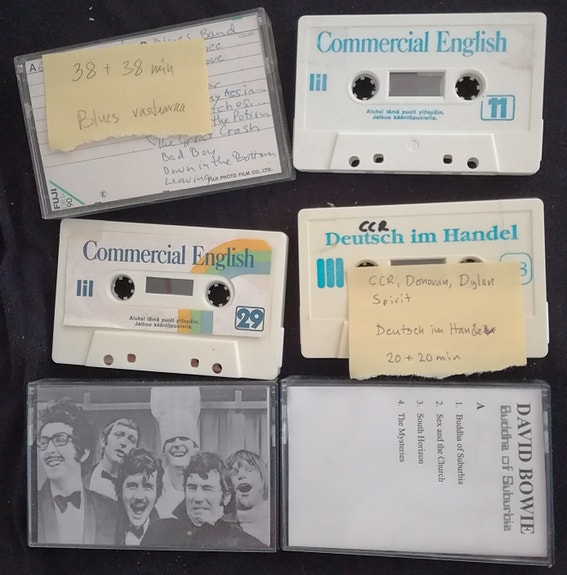 Blues Band
38 + 38 min
Blues vastaavaa
the Potion
Crash
Bad Boy
Down in the Bottom
Leaving
FUJI PHOTO FILM CO., LTD.
FUJI
90
Commercial English
lil
11
Aluksi tämä puoli ylöspäin.
Jatkuu kääntöpuolella.
Commercial English
lil
29
Aluksi tämä puoli ylöspäin.
Jatkuu kääntöpuolella.
CCR
Deutsch im Handel
3
CCR, Donovan, Dylan
Spirit
Deutsch im Handel
20 + 20 min
DAVID BOWIE
Buddha of Suburbia
A
1. Buddha of Suburbia
2. Sex and the Church
3. South Horizon
4. The Mysteries